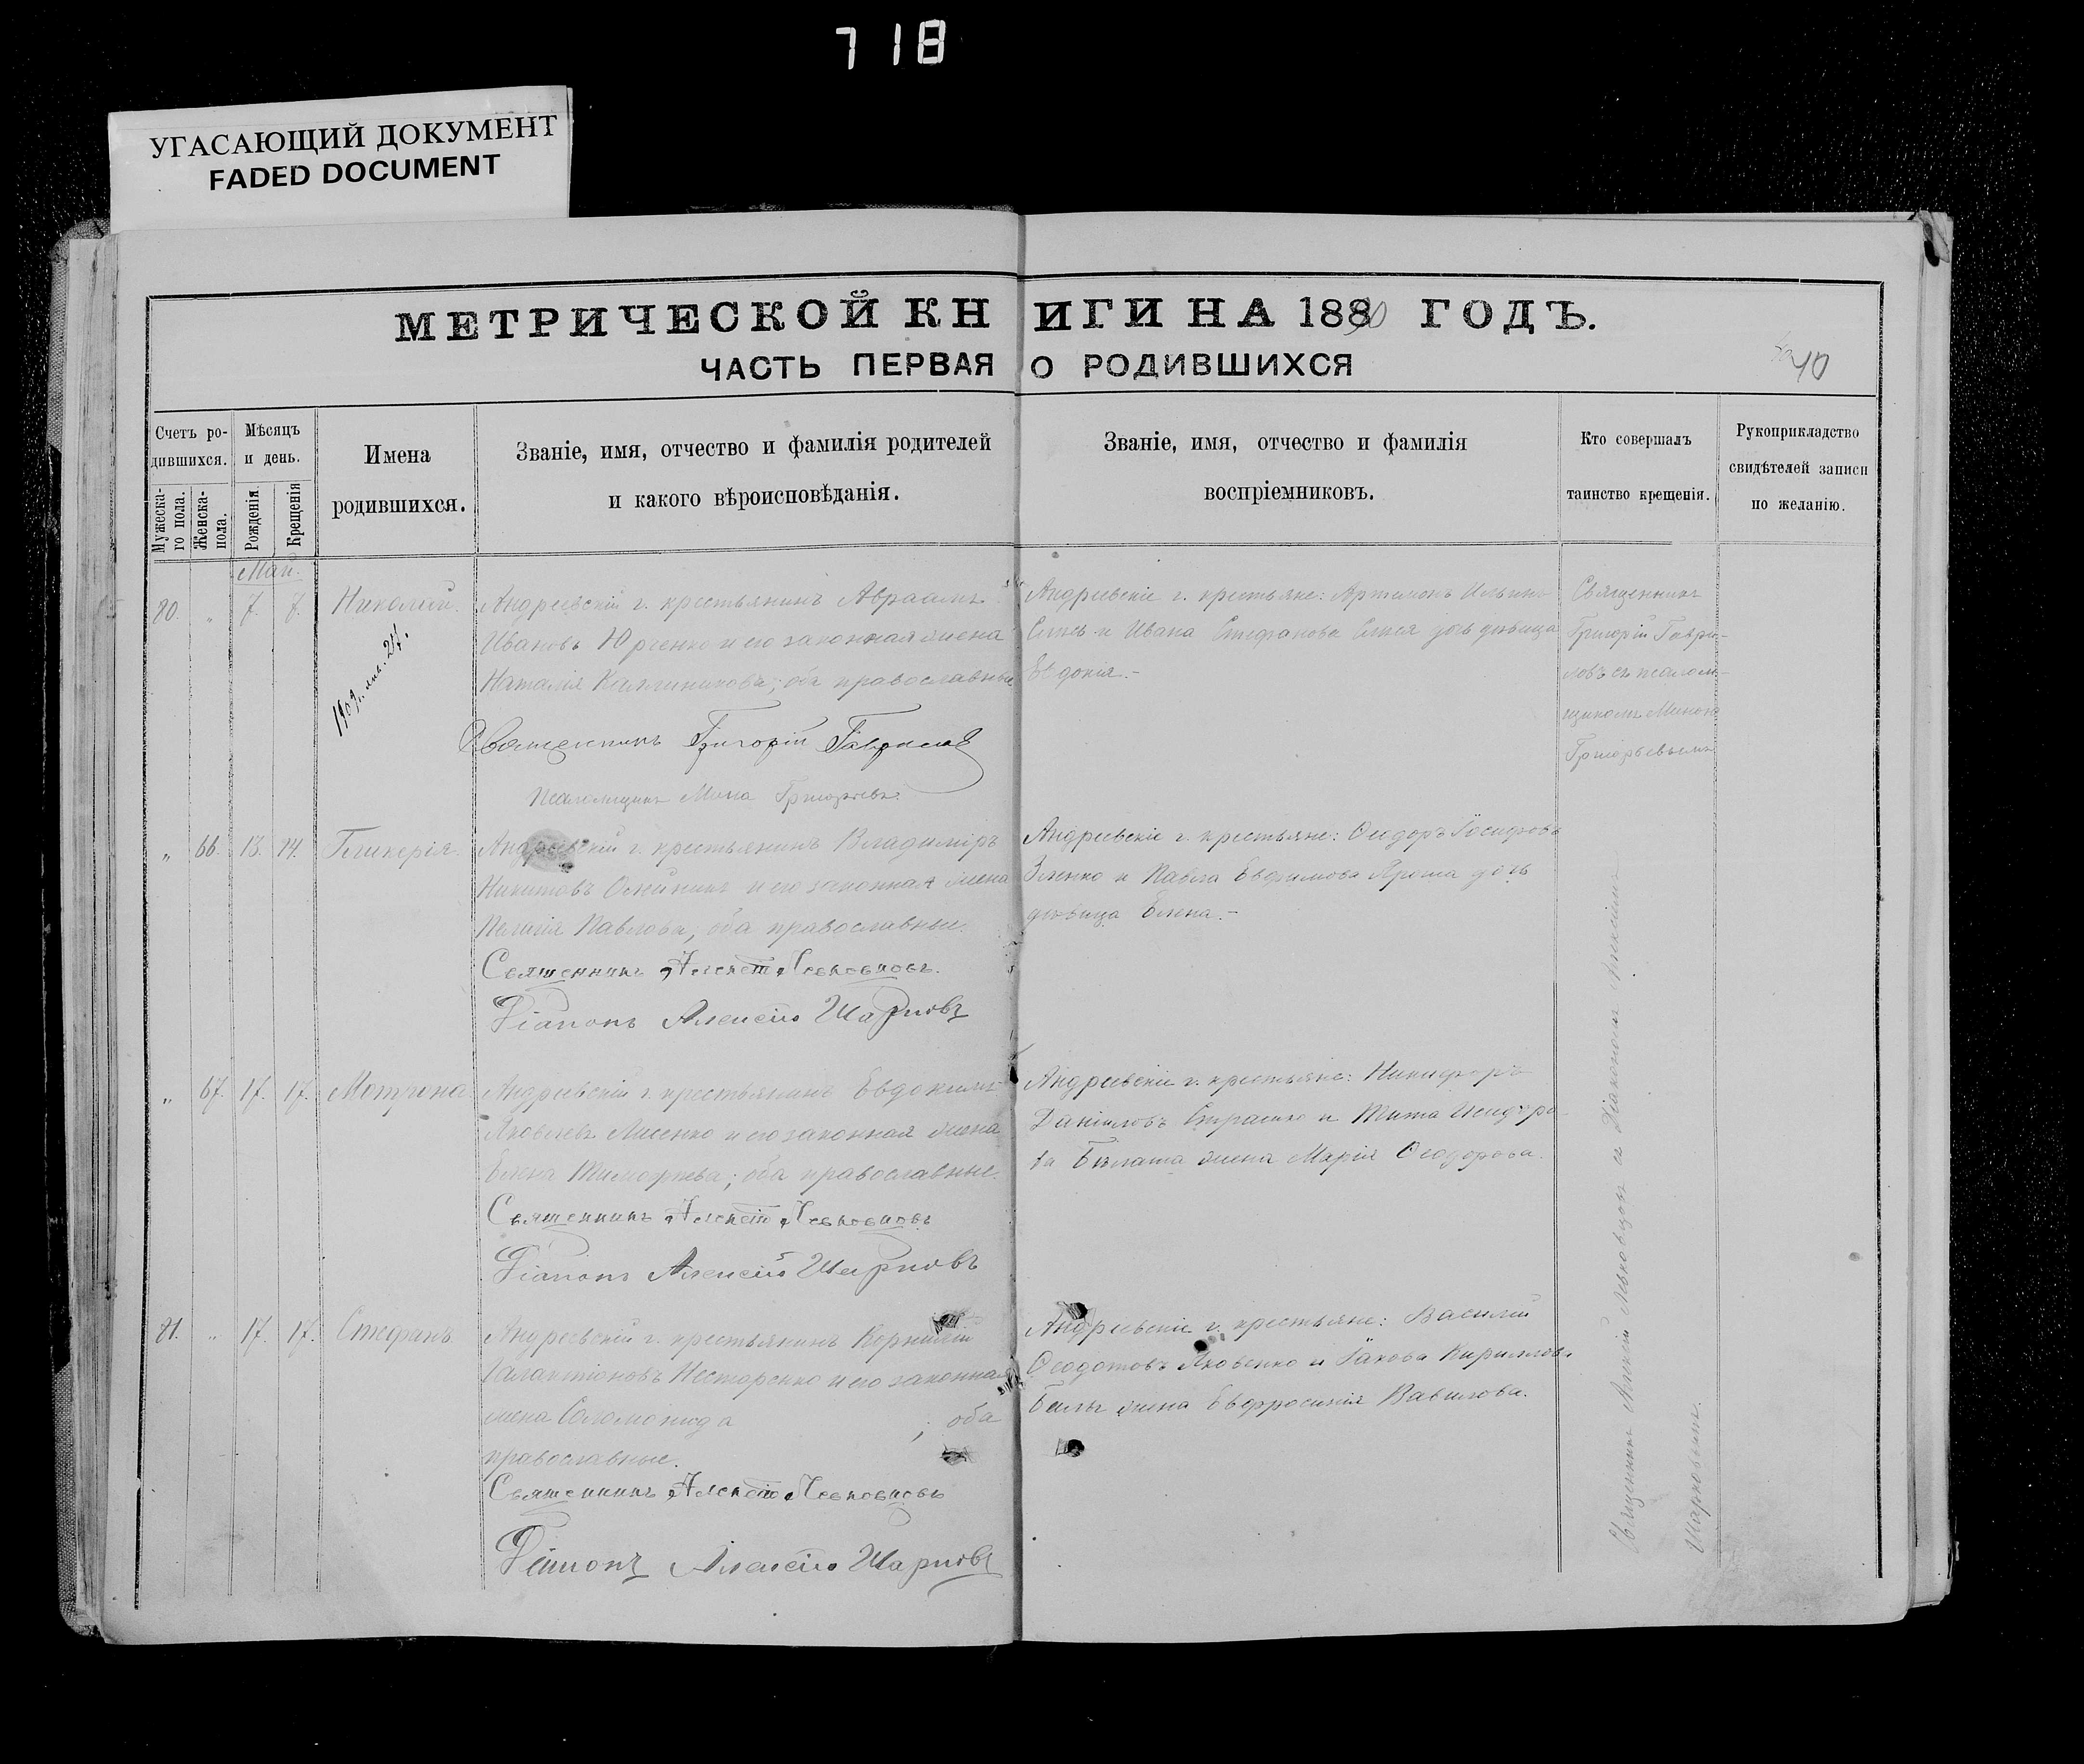 718
УГАСАЮЩИЙ ДОКУМЕНТ
FADED DOCUMENT
МЕТРИЧЕСКОЙ КНИГИ НА 1890 ГОДЪ.
ЧАСТЬ ПЕРВАЯ О РОДИВШИХСЯ
40
Счетъ ро-
дившихся.
Мужеска-
го пола.
Женска-
пола.
Мѣсяцъ
и день.
Рожденія.
Крещенія
Имена
родившихся.
Званіе, имя, отчество и фамилія родителей
и какого вѣроисповѣданія.
Званіе, имя, отчество и фамилія
воспріемниковъ.
Кто совершалъ
таинство крещенія.
Рукоприкладство
свидѣтелей записи
по желанію.
Май.
80. „ 7. 7. Николай.
Андреевскій г. крестьянинъ Авраамъ
Ивановъ Юрченко и его законная жена
Наталія Каллиникова; оба православные
Священникъ Григорій Гавриловъ
Псаломщикъ Мина Григорьевъ.
Андреевскіе г. крестьяне: Артемонъ Ильинъ
и Ивана Стефанова дочь дѣвица
Евдокія.-
Священникъ
Григорій Гаври-
ловъ съ псалом-
щикомъ Миною
Григорьевымъ
„ 66. 13. 14. Гликерія.
Андреевскій г. крестьянинъ Владиміръ
Никитовъ Олейникъ и его законная жена
Пелагія Павлова, оба православные.
Священникъ Алексій Левковцовъ.
Діаконъ Алексій Шарковъ
Андреевскіе г. крестьяне: Ѳеодоръ Іосифовъ
Зленко и Павла Евфимова Яроша дочь
дѣвица Елена.-
„ 67. 17. 17. Мотрона
Андреевскій г. крестьянинъ Евдокимъ
Яковлевъ Лисенко и его законная жена
Елена Тимофеева; оба православные.
Священникъ Алексій Левковцовъ
Діаконъ Алексій Шарковъ
Андреевскіе г. крестьяне: Никифоръ
Даніиловъ и Тита Исидоро-
ва жена Марія Ѳеодорова.
81. „ 17. 17. Стефанъ
Андреевскій г. крестьянинъ Корнилій
Галактіоновъ Нестеренко и его законная
жена Соломонида ; оба
православные.
Священникъ Алексій Левковцовъ
Діаконъ Алексій Шарковъ
Андреевскіе г. крестьяне: Василій
Ѳеодотовъ Яковенко и Іакова Кириллова
жена Евфросинія Вавилова.
Священникъ Алексій Левковцовъ съ Діакономъ Алексіемъ
Шарковымъ.